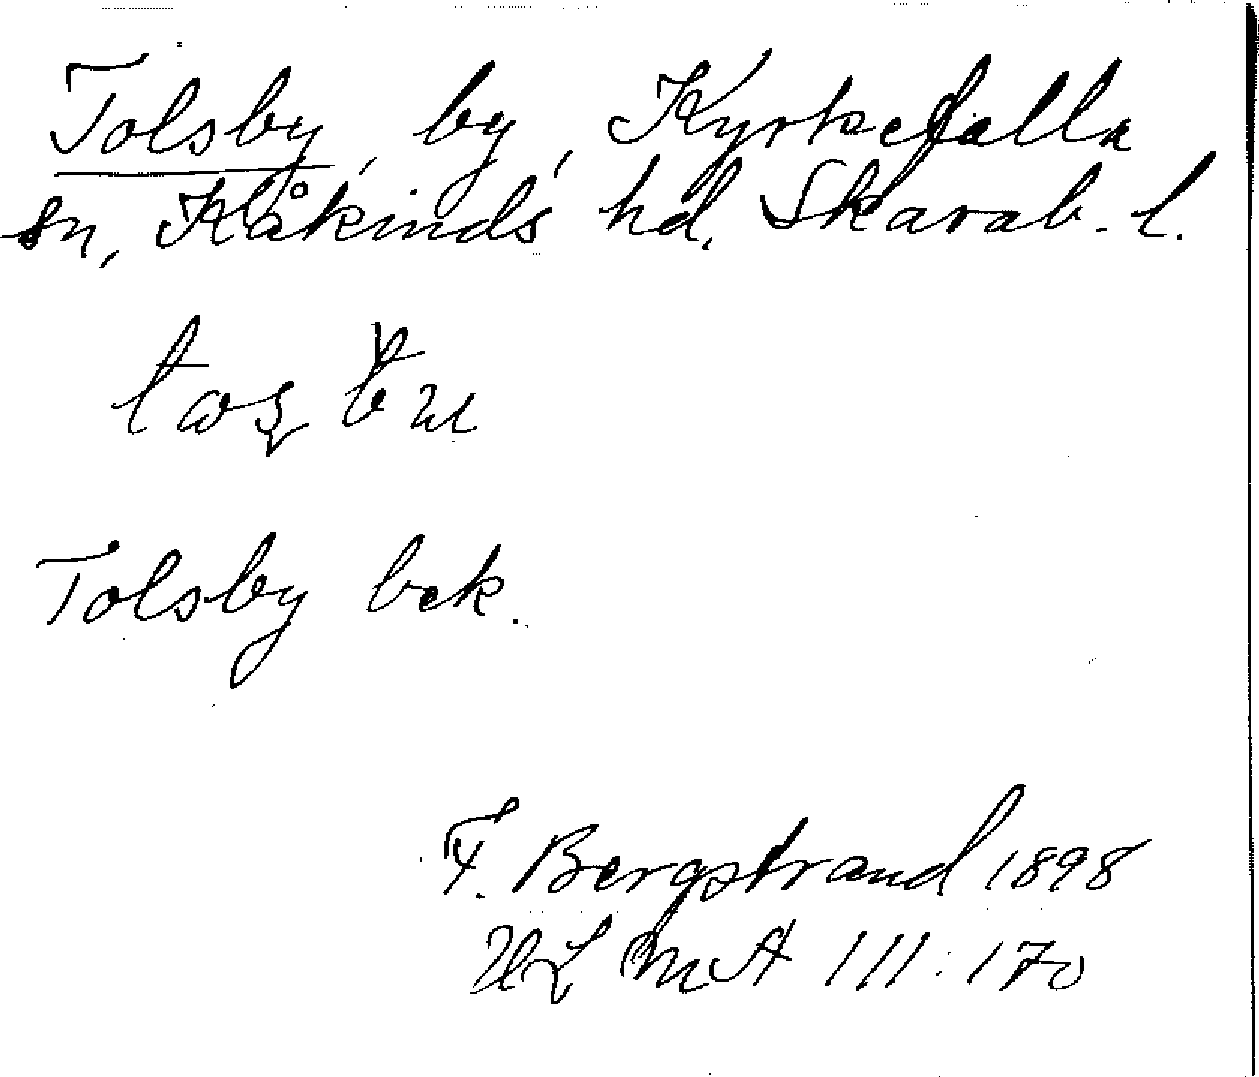 Tolsby, by, Kyrkefalla
sn, Kåkinds hd, Skarab. l.
Tolsby bek.
F. Bergstrand 1898
111:170